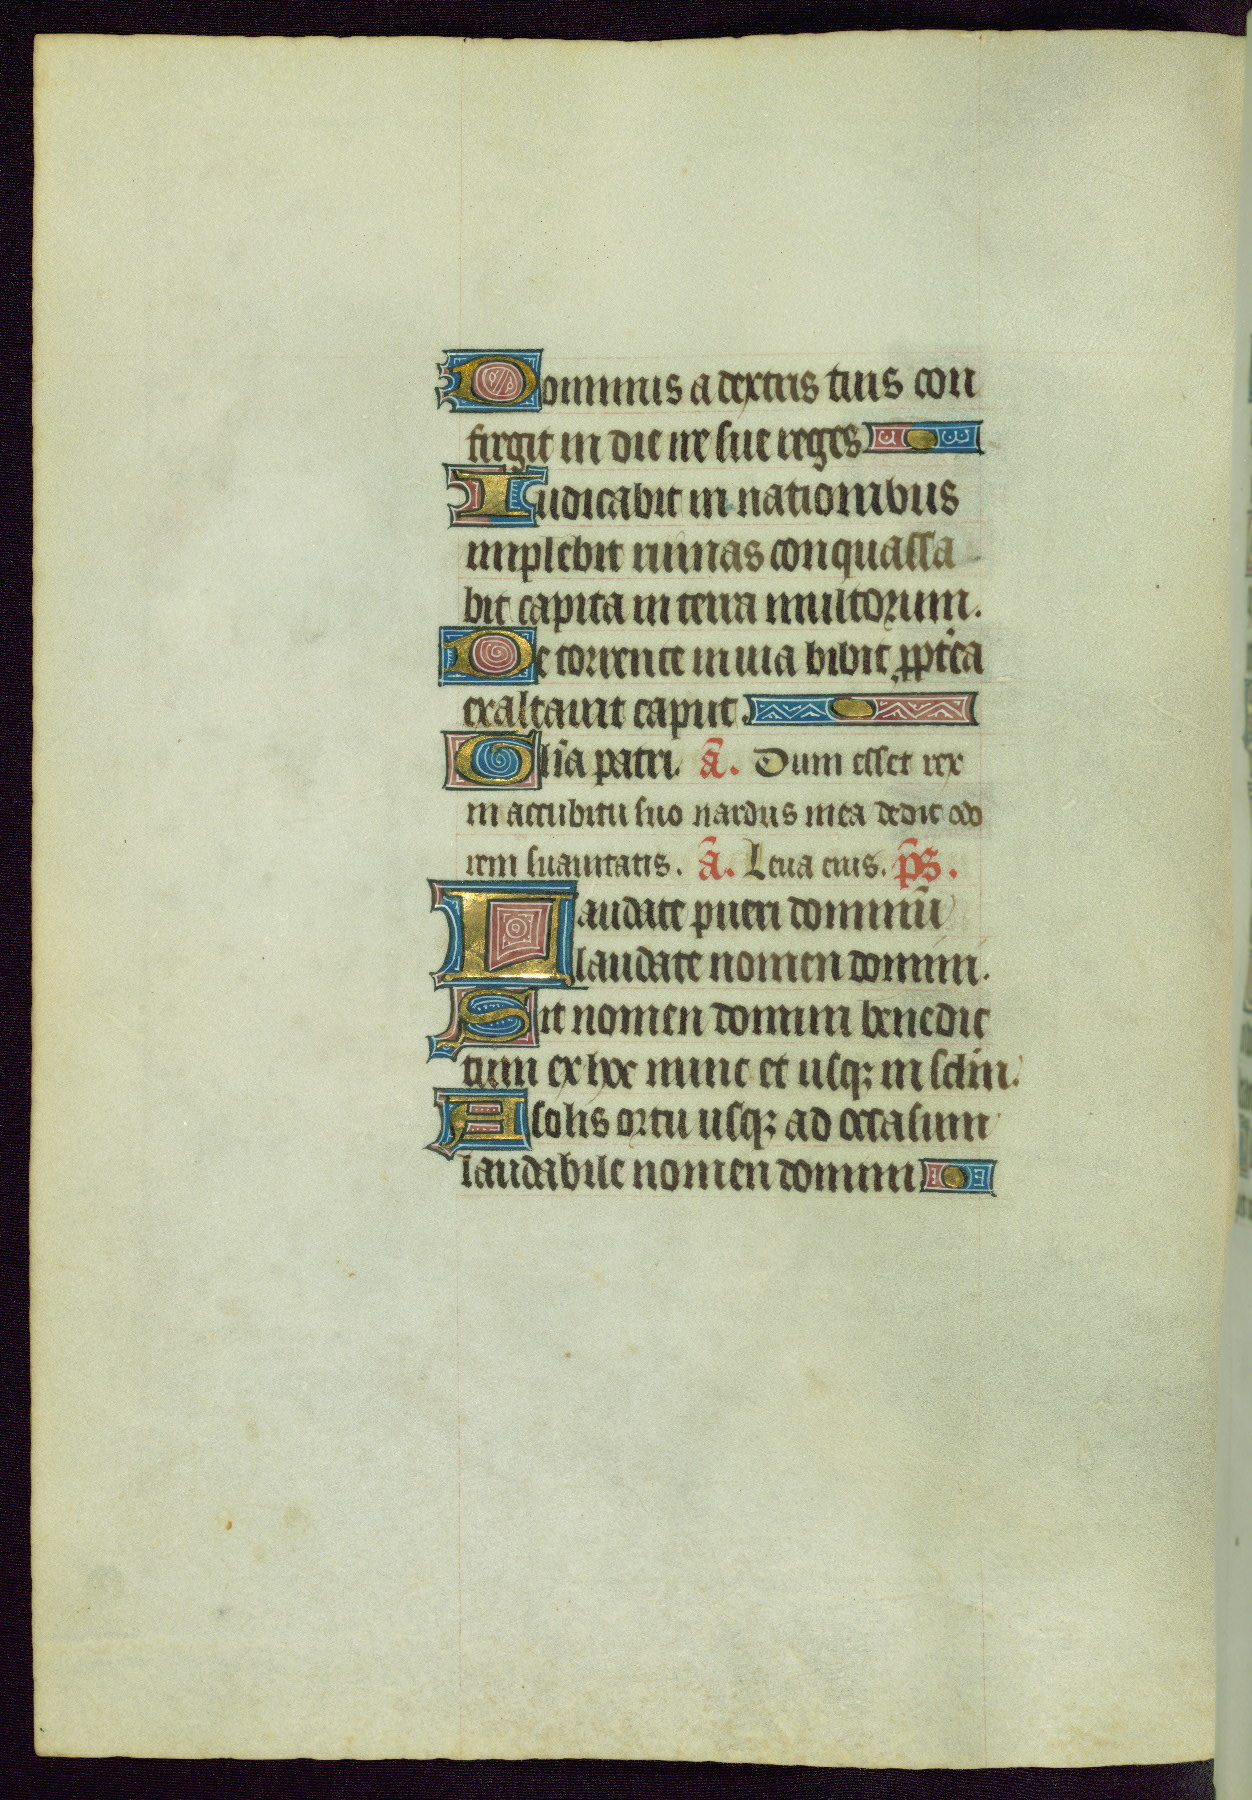 Dominus a dextris tuis con
fregit in die ire sue reges
Iudicabit in nationibus
implebit ruinas conquassa
bit capita in terra multorum.
De torrente in uia bibit ꝓpt̄ea
exaltauit caput.
Gl̄ia patri. ā. Dum esset rex
in accubitu suo nardus mea dedit odo
rem suauitatis. ā. Leua eius. p̄s.
Laudate pueri dominū
laudate nomen domini.
Sit nomen domini benedic
tum ex hoc nunc et usqꝫ in sclm̄.
A solis ortu usqꝫ ad occasum
laudabile nomen domini